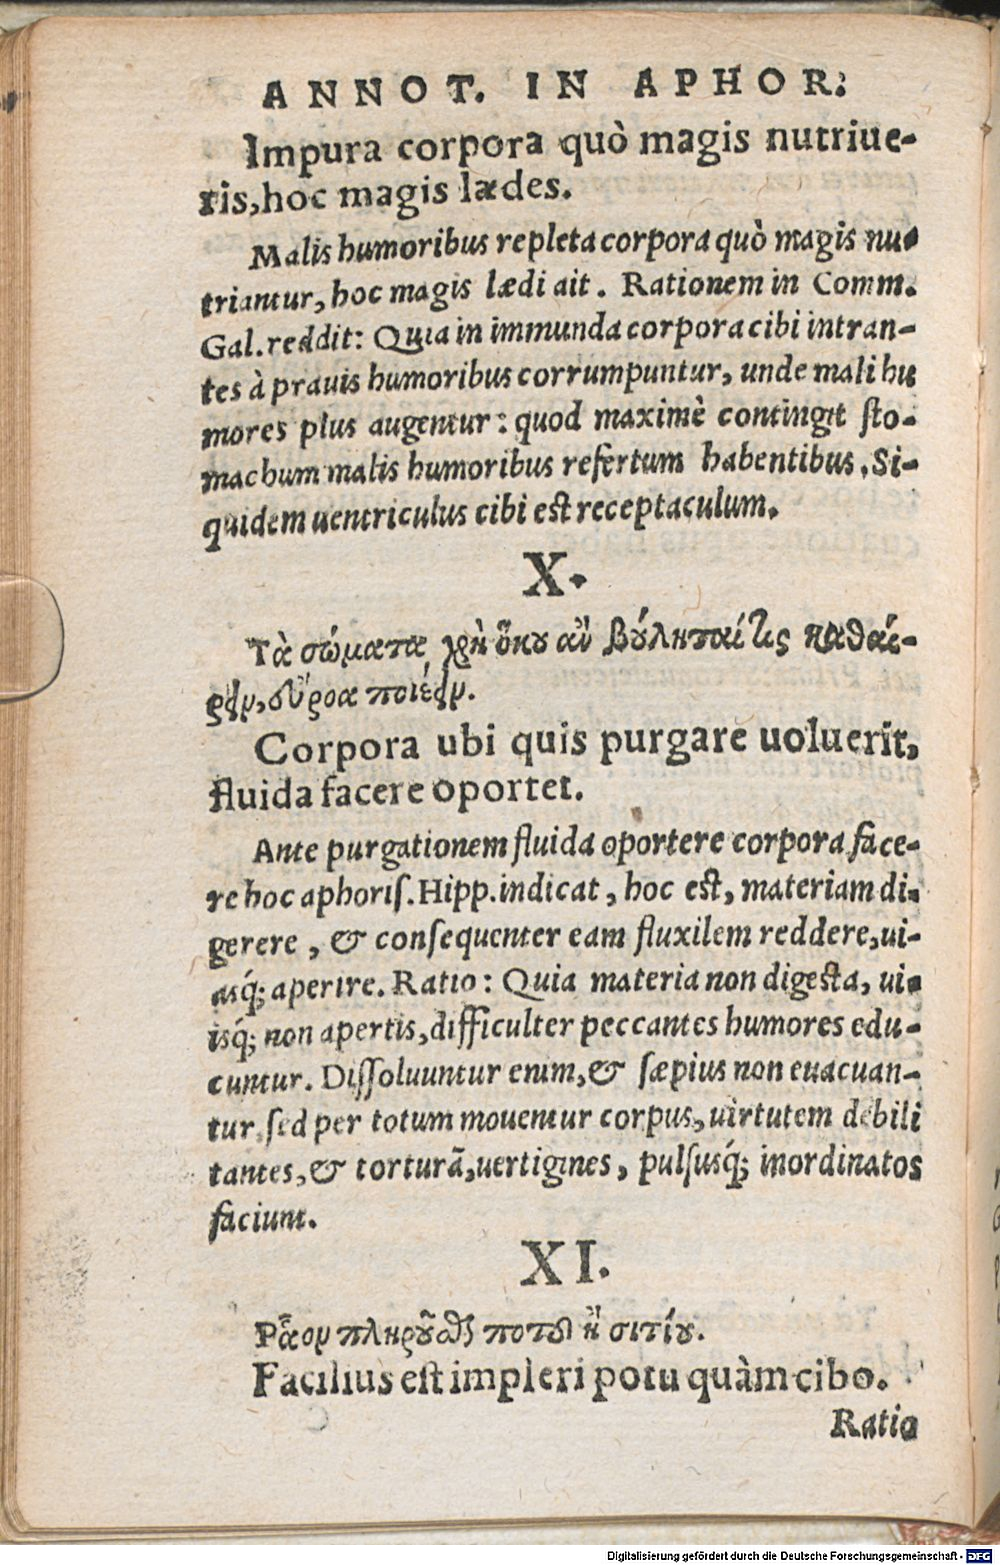 ANNOT. IN APHOR.
Impura corpora quò magis nutriue-
ris, hoc magis lædes.
Malis humoribus repleta corpora quò magis nu-
triantur, hoc magis lædi ait. Rationem in Comm.
Gal. reddit: Quia in immunda corpora cibi intran-
tes à prauis humoribus corrumpuntur, unde mali hu
mores plus augentur: quod maximè contingit sto-
machum malis humoribus refertum habentibus. Si-
quidem uentriculus cibi est receptaculum.
X.
Τὰ σώματα χρὴ ὅκου ἂν βούληταί τις καθαί-
ρειν, εὔροα ποιέειν.
Corpora ubi quis purgare uoluerit,
fluida facere oportet.
Ante purgationem fluida oportere corpora face-
re hoc aphoris. Hipp. indicat, hoc est, materiam di-
gerere, & consequenter eam fluxilem reddere, ui-
asq́; aperire. Ratio: Quia materia non digesta, ui-
isq́; non apertis, difficulter peccantes humores edu-
cuntur. Dissoluuntur enim, & sæpius non euacuan-
tur, sed per totum mouentur corpus, uirtutem debili
tantes, & torturã, uertigines, pulsusq́; inordinatos
faciunt.
XI.
Ρᾷον πληροῦσθαι ποτοῦ ἢ σιτίου.
Facilius est impleri potu quàm cibo.
Ratio
Digitalisierung gefördert durch die Deutsche Forschungsgemeinschaft - DFG